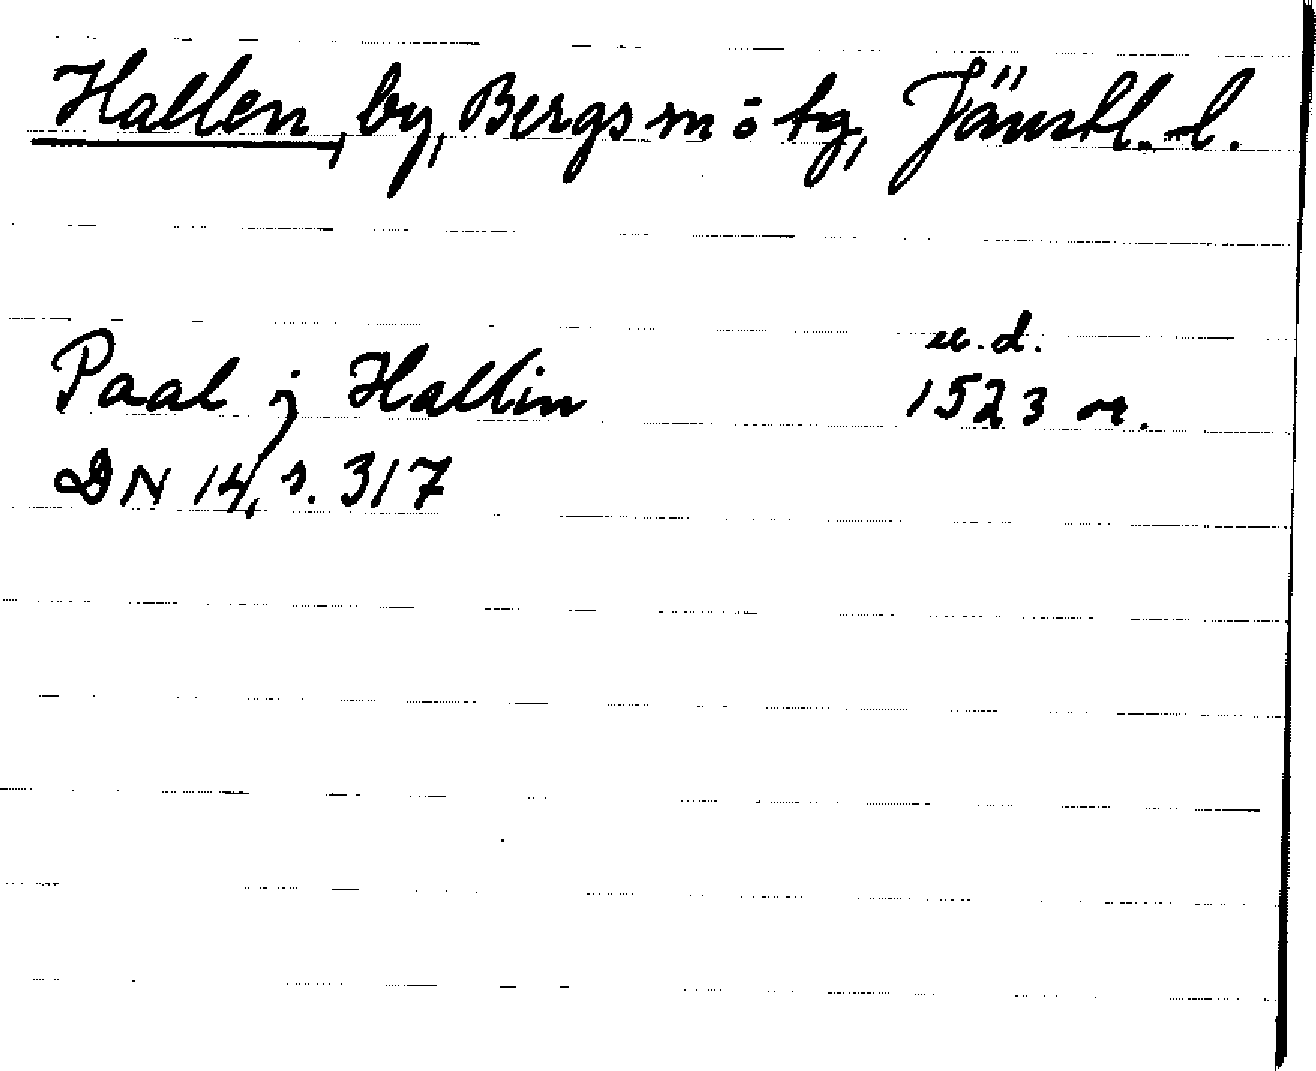 Hallen, by, Bergs m o tg, Jämtl. l.
u.d.
Paal j Hallin 1523 or.
DN 14, s. 317